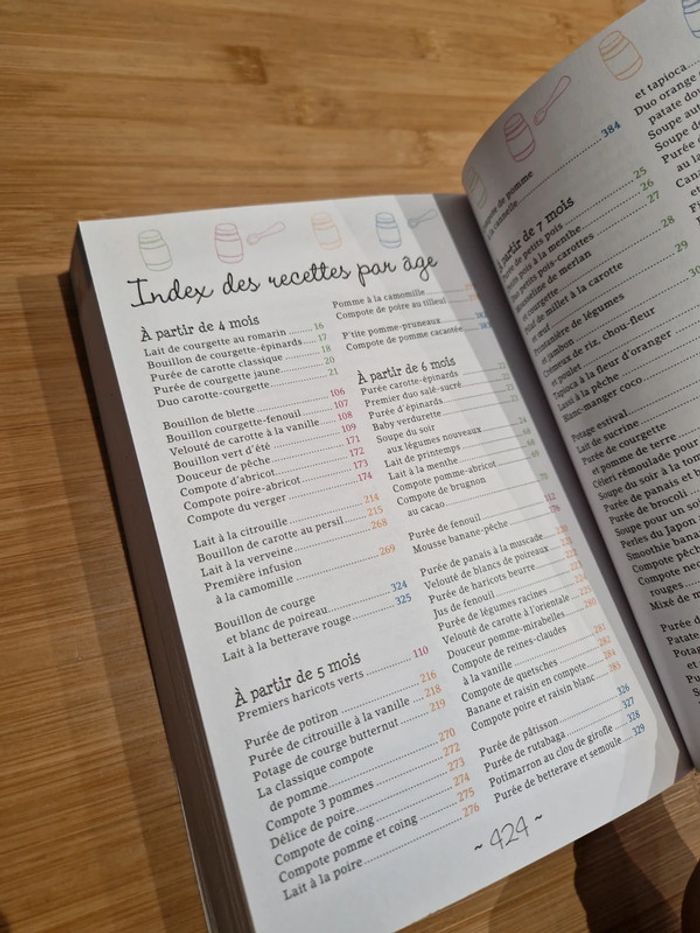 Index des recettes par âge
À partir de 4 mois
Lait de courgette au romarin 16
Bouillon de courgette-épinards 17
Purée de carotte classique 18
Purée de courgette jaune 20
Duo carotte-courgette 21
Bouillon de blette 106
Bouillon courgette-fenouil 107
Velouté de carotte à la vanille 108
Bouillon vert d'été 109
Douceur de pêche 171
Compote d'abricot 172
Compote poire-abricot 173
Compote du verger 174
Lait à la citrouille 214
Bouillon de carotte au persil 215
Lait à la verveine 268
Première infusion
à la camomille 269
Bouillon de courge
et blanc de poireau 324
Lait à la betterave rouge 325
À partir de 5 mois
Premiers haricots verts 110
Purée de potiron 216
Purée de citrouille à la vanille 218
Potage de courge butternut 219
La classique compote
de pomme 270
Compote 3 pommes 272
Délice de poire 273
Compote de coing 274
Compote pomme et coing 275
Lait à la poire 276
Pomme à la camomille
Compote de poire au tilleul
P'tite pomme-pruneaux
Compote de pomme cacaotée
À partir de 6 mois
Purée carotte-épinards
Premier duo salé-sucré
Purée d'épinards
Baby verdurette
Soupe du soir
aux légumes nouveaux 24
Lait de printemps
Lait à la menthe 68
Compote pomme-abricot 69
Compote de brugnon
au cacao 70
Purée de fenouil 112
Mousse banane-pêche 176
Purée de panais à la muscade 220
Velouté de blancs de poireaux
Purée de haricots beurre 222
Jus de fenouil
Purée de légumes racines 224
Velouté de carotte à l'orientale
Douceur pomme-mirabelles 280
Compote de reines-claudes
à la vanille 281
Compote de quetsches 282
Banane et raisin en compote 284
Compote poire et raisin blanc 285
Purée de pâtisson 326
Purée de rutabaga 327
Potimarron au clou de girofle 328
Purée de betterave et semoule 329
~ 424 ~
de pomme
cannelle 384
partir de 7 mois
de petits pois 25
pois à la menthe 26
petits pois-carottes 27
de merlan
et courgette 28
de millet à la carotte
et œuf 29
de légumes
et jambon
Crémeux de riz, chou-fleur
et poulet
Tapioca à la fleur d'oranger
à la pêche
Blanc-manger coco
Potage estival
Lait de sucrine
Purée de courgette
et pomme de terre
Céleri rémoulade
Soupe du soir à la
Purée de panais et
Purée de brocoli
Soupe pour un
Perles du Japon
Smoothie
Compote
Compote
rouges
Mixé de
Purée
et tapioca
Duo orange
patate
Soupe
Soupe de
Purée